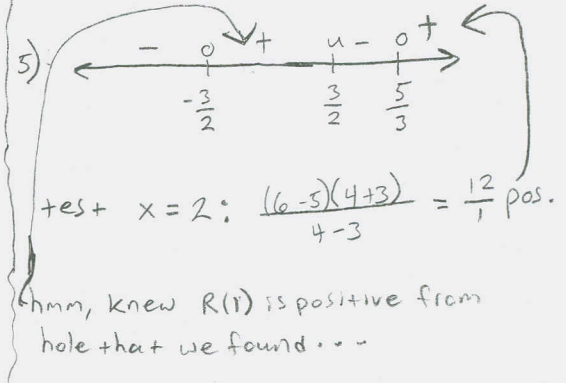 5) − o + u − o +
-3/2 3/2 5/3
test x = 2: (6-5)(4+3) / 4-3 = 12/1 pos.
hmm, knew R(1) is positive from
hole that we found...